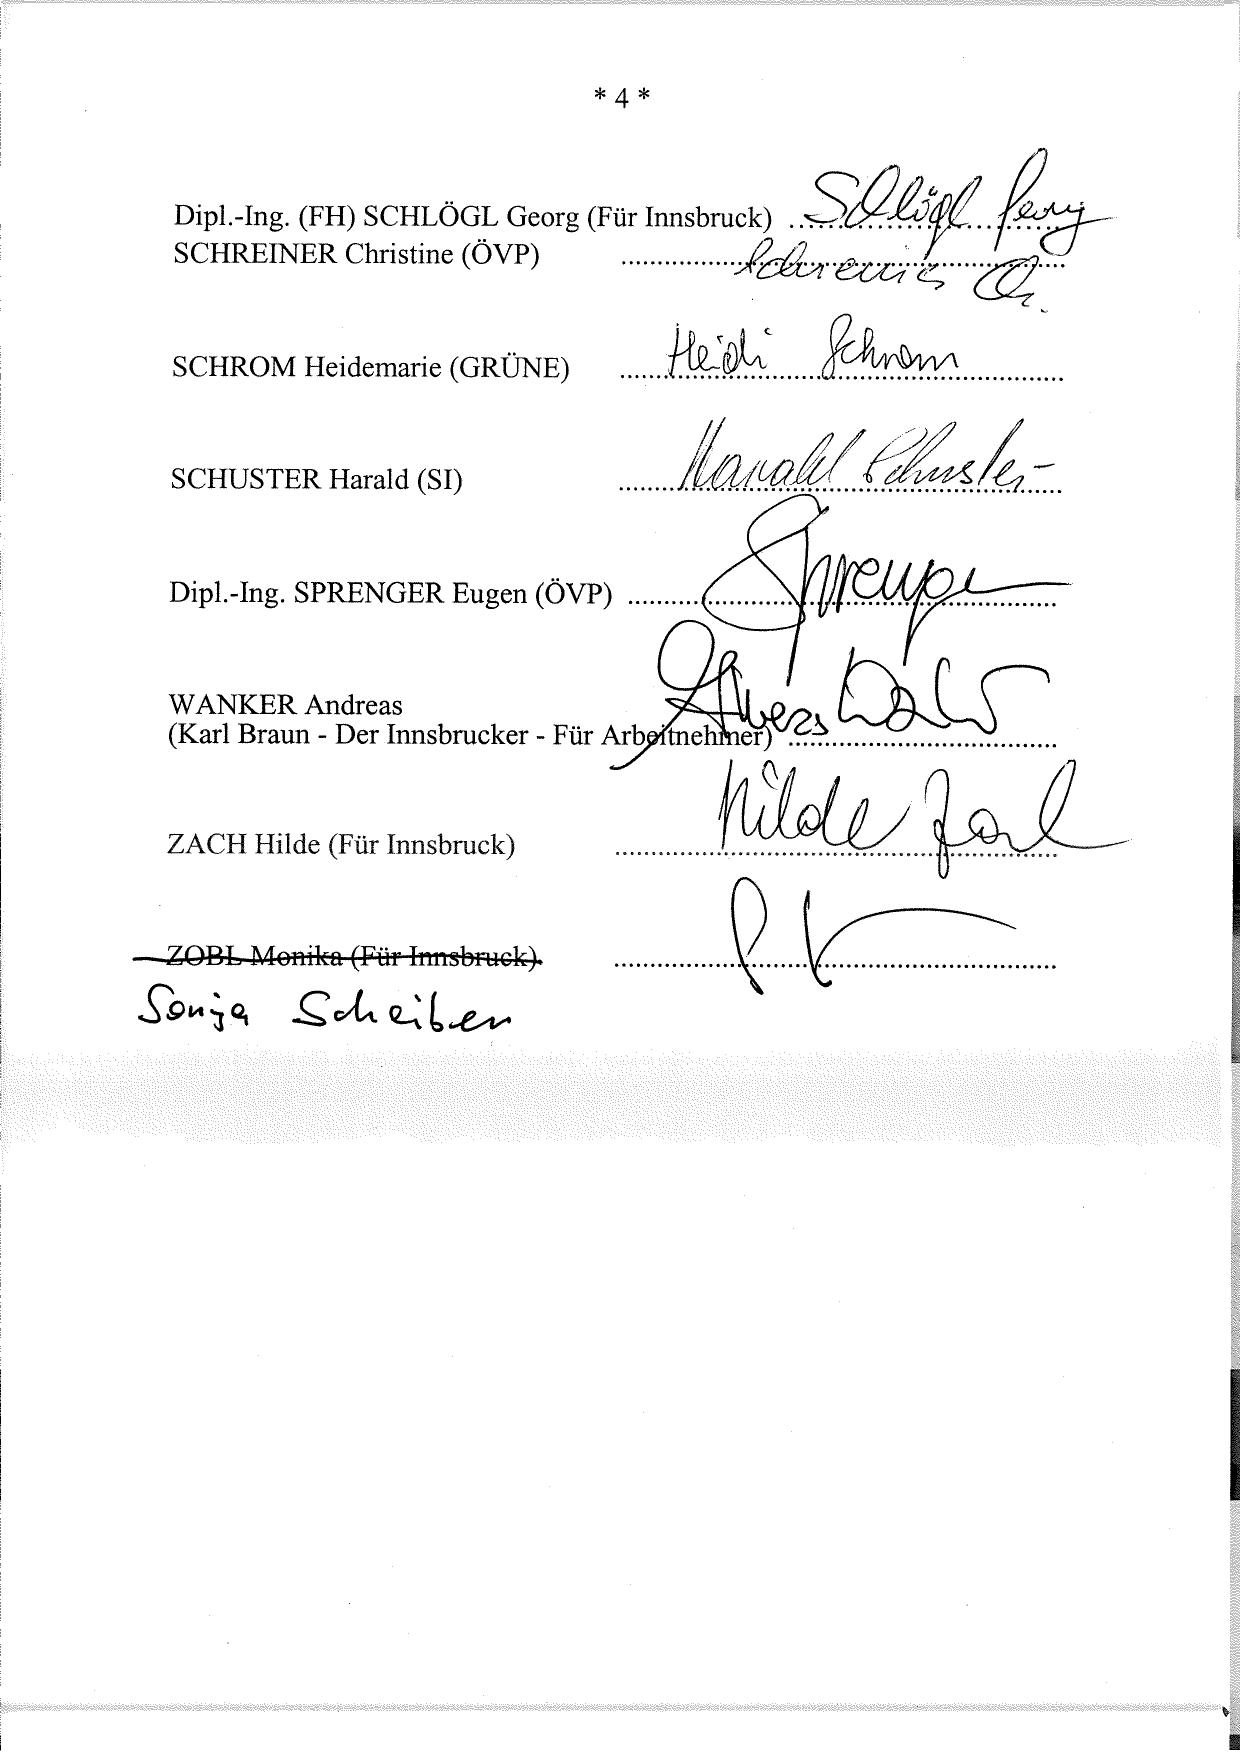 * 4 *
Dipl.-Ing. (FH) SCHLÖGL Georg (Für Innsbruck) Schlögl Georg
SCHREINER Christine (ÖVP) Schreiner Ch.
SCHROM Heidemarie (GRÜNE) Heidi Schrom
SCHUSTER Harald (SI) Harald Schuster
Dipl.-Ing. SPRENGER Eugen (ÖVP) Sprenger
WANKER Andreas
(Karl Braun - Der Innsbrucker - Für Arbeitnehmer)
ZACH Hilde (Für Innsbruck) Hilde Zach
ZOBL Monika (Für Innsbruck)
Sonja Scheiber